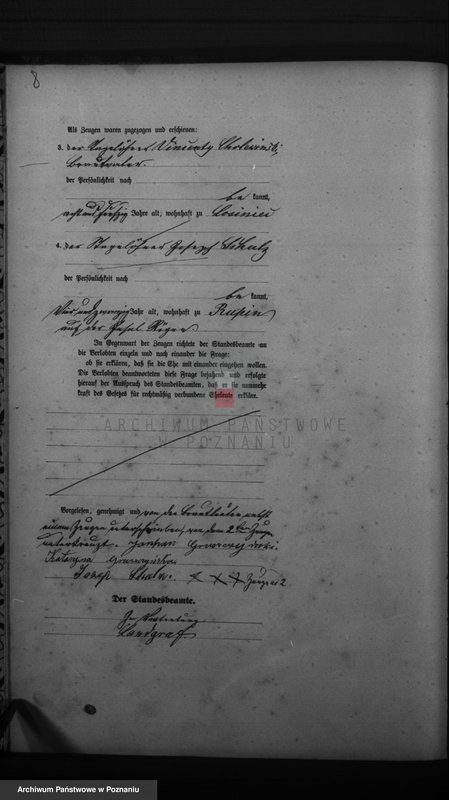 8
Als Zeugen waren zugezogen und erschienen:
3. der Tagelöhner Vincenty
der Persönlichkeit nach
be kannt,
Jahre alt, wohnhaft zu
4. der Tagelöhner Joseph
der Persönlichkeit nach
be kannt,
Vier und zwanzig Jahr alt, wohnhaft zu Ruspin
auf der Insel Rügen
In Gegenwart der Zeugen richtete der Standesbeamte an
die Verlobten einzeln und nach einander die Frage:
ob sie erklären, daß sie die Ehe mit einander eingehen wollen.
Die Verlobten beantworteten diese Frage bejahend und erfolgte
hierauf der Ausspruch des Standesbeamten, daß er sie nunmehr
kraft des Gesetzes für rechtmäßig verbundene Eheleute erkläre.
ARCHIWUM PAŃSTWOWE
W POZNANIU
Vorgelesen, genehmigt und von den Brautleuten nebst
einem Zeugen unterschrieben, von dem 2ten Zeugen
unterkreuzt.
Katarzyna
Jozef + + + Zeuge 2
Der Standesbeamte.
In Vertretung
Landgraf
Archiwum Państwowe w Poznaniu